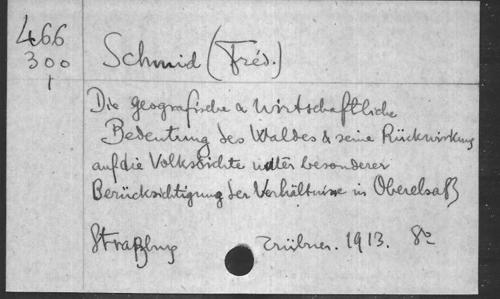 466
300
1
Schmid (Fréd.)
Die geografische & wirtschaftliche
Bedeutung des Waldes & seine Rückwirkung
auf die Volksdichte unter besonderer
Berücksichtigung der Verhältnisse in Oberelsaß
Straßbg Trübner. 1913. 8°